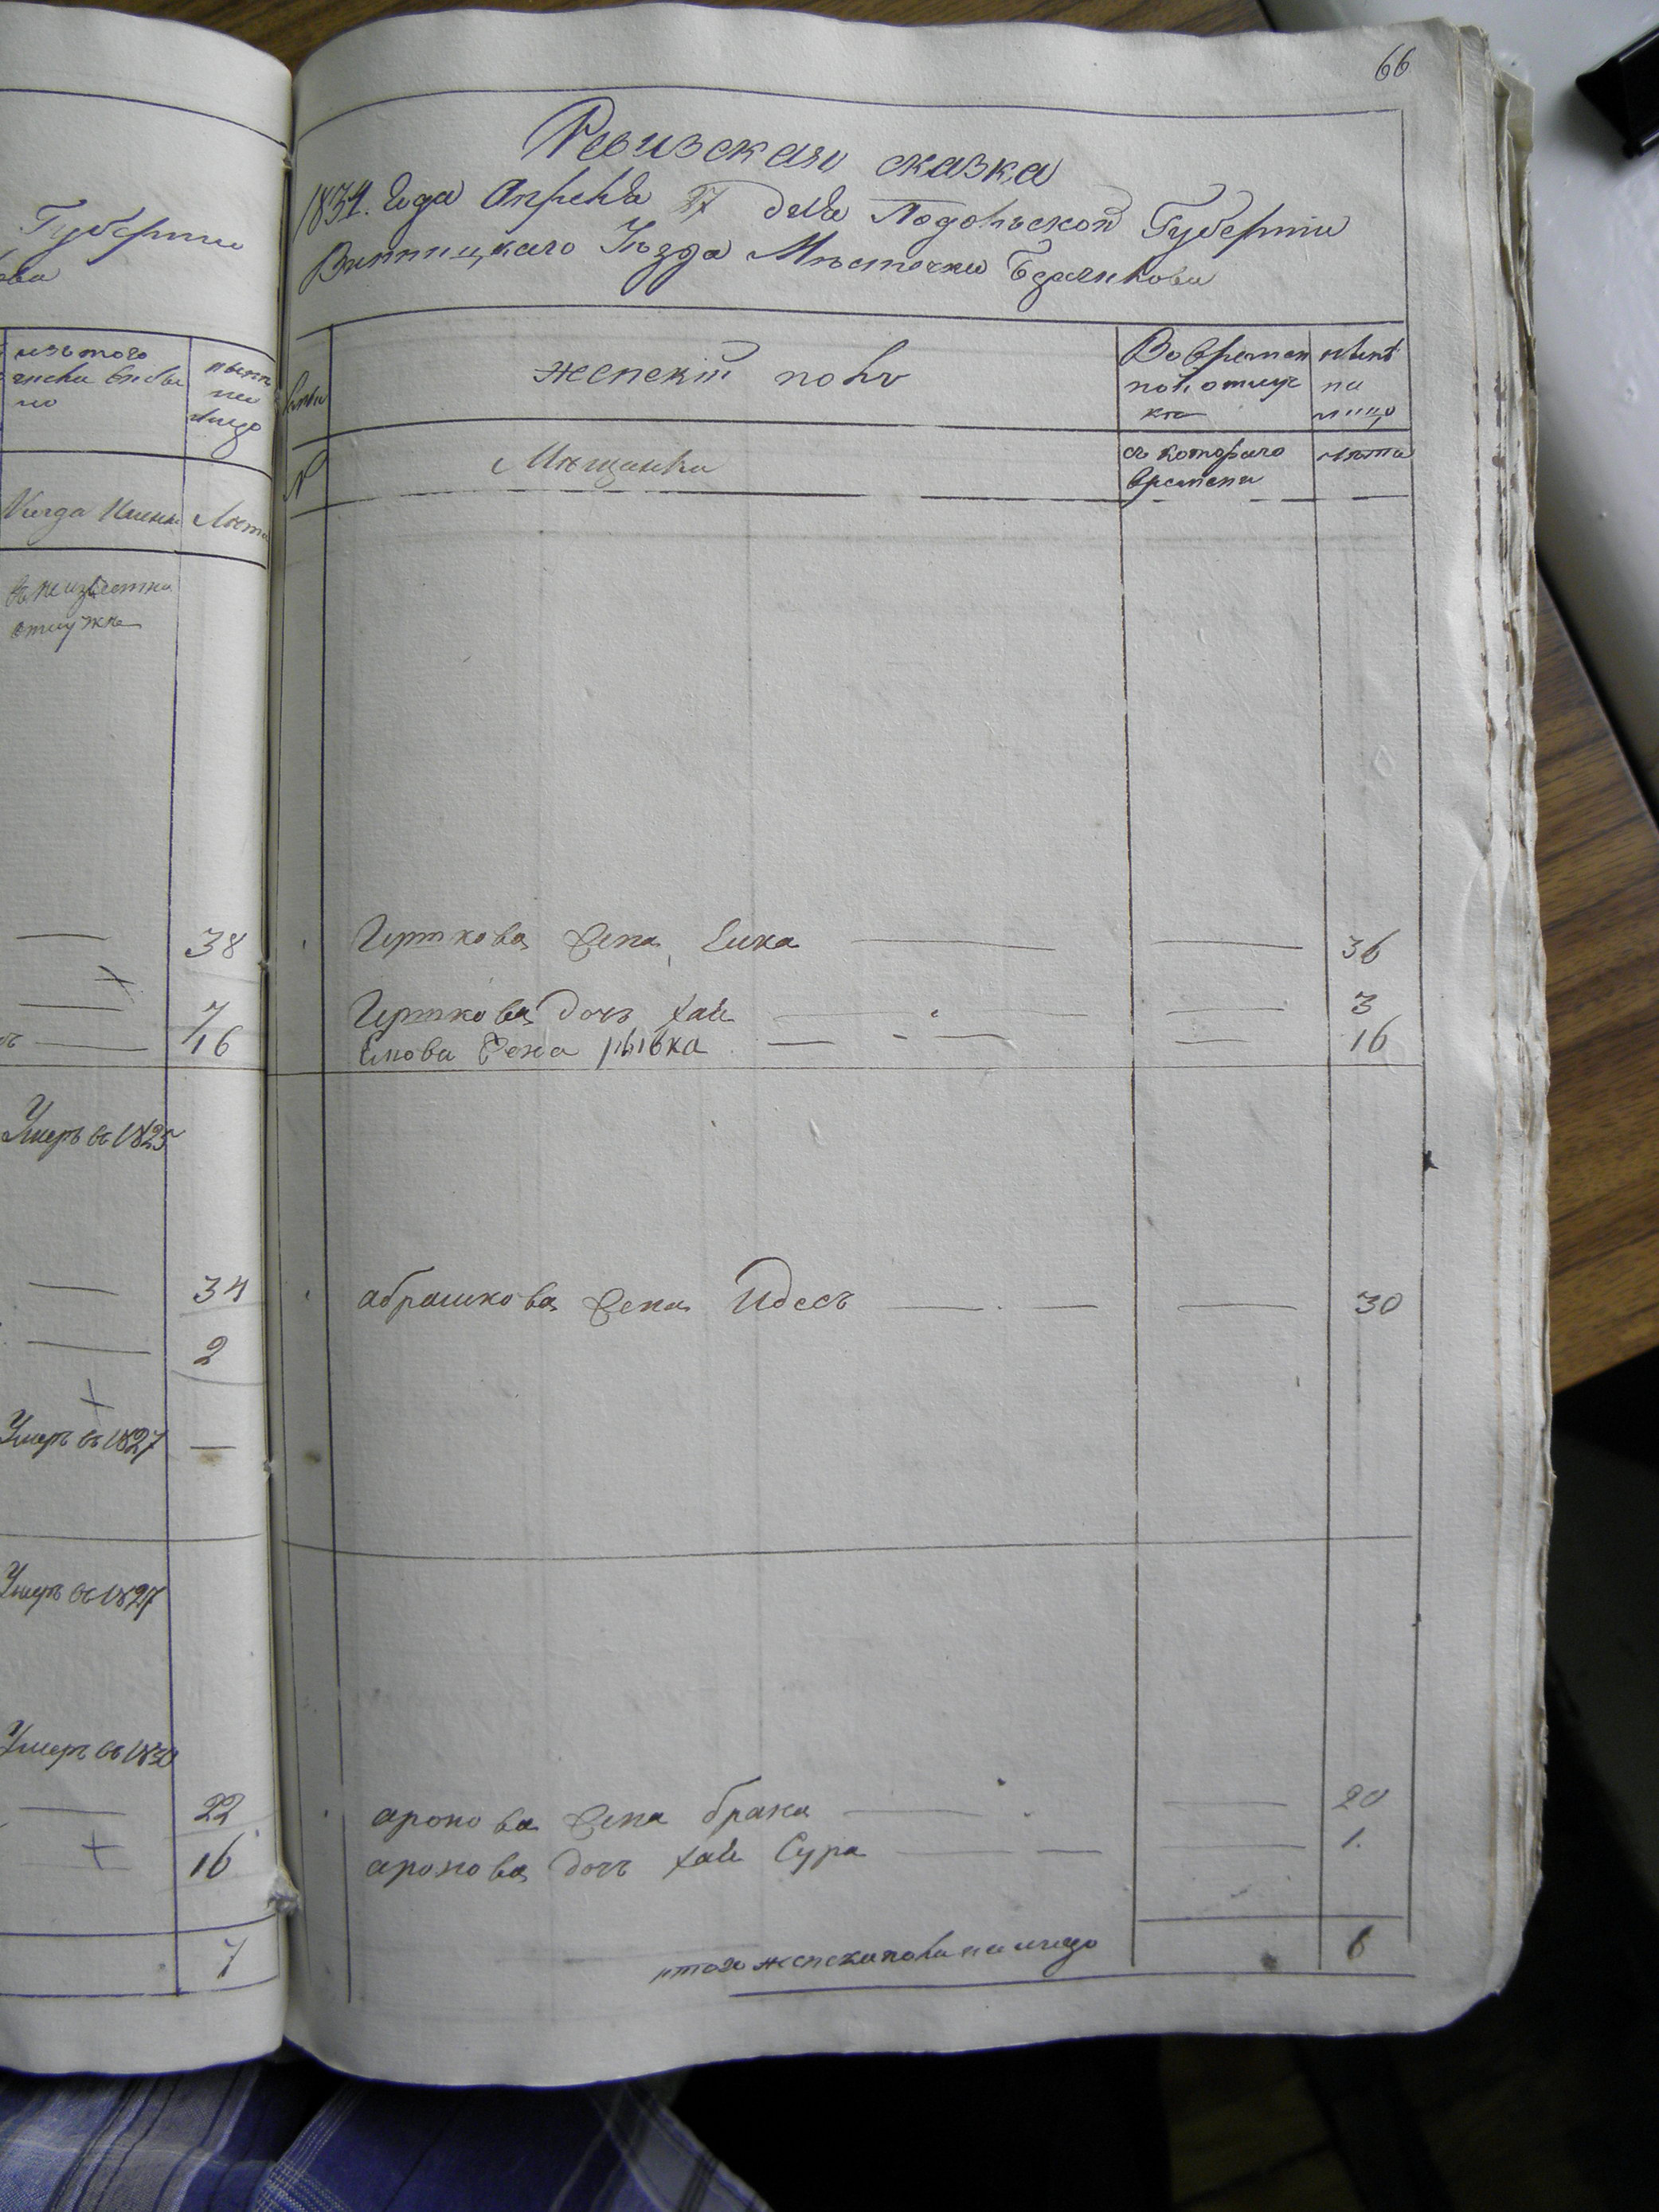 Губернии
изъ того
числа выбы
ло
нынѣ
на
лицо
Когда именно
Лѣта
въ неизвестной
отлучкѣ
38
7
16
Умеръ въ 1825
34
2
Умеръ въ 1827
Умеръ въ 1827
Умеръ въ 1830
22
16
7
66
Ревизская сказка
1834. Года Апреля 27 дня Подольской Губернии
Винницкаго Уѣзда Мѣстечка
женский полъ
Во времен
ной отлуч
ке
нынѣ
на
лицо
№
Мещанки
съ котораго
времени
лѣта
Гершкова жена 36
Гершкова дочь хая 3
жена рывка 16
абрашкова жена Идесъ 30
аронова жена брана 20
аронова дочь хая Сура 1.
итого женска пола на лицо 6